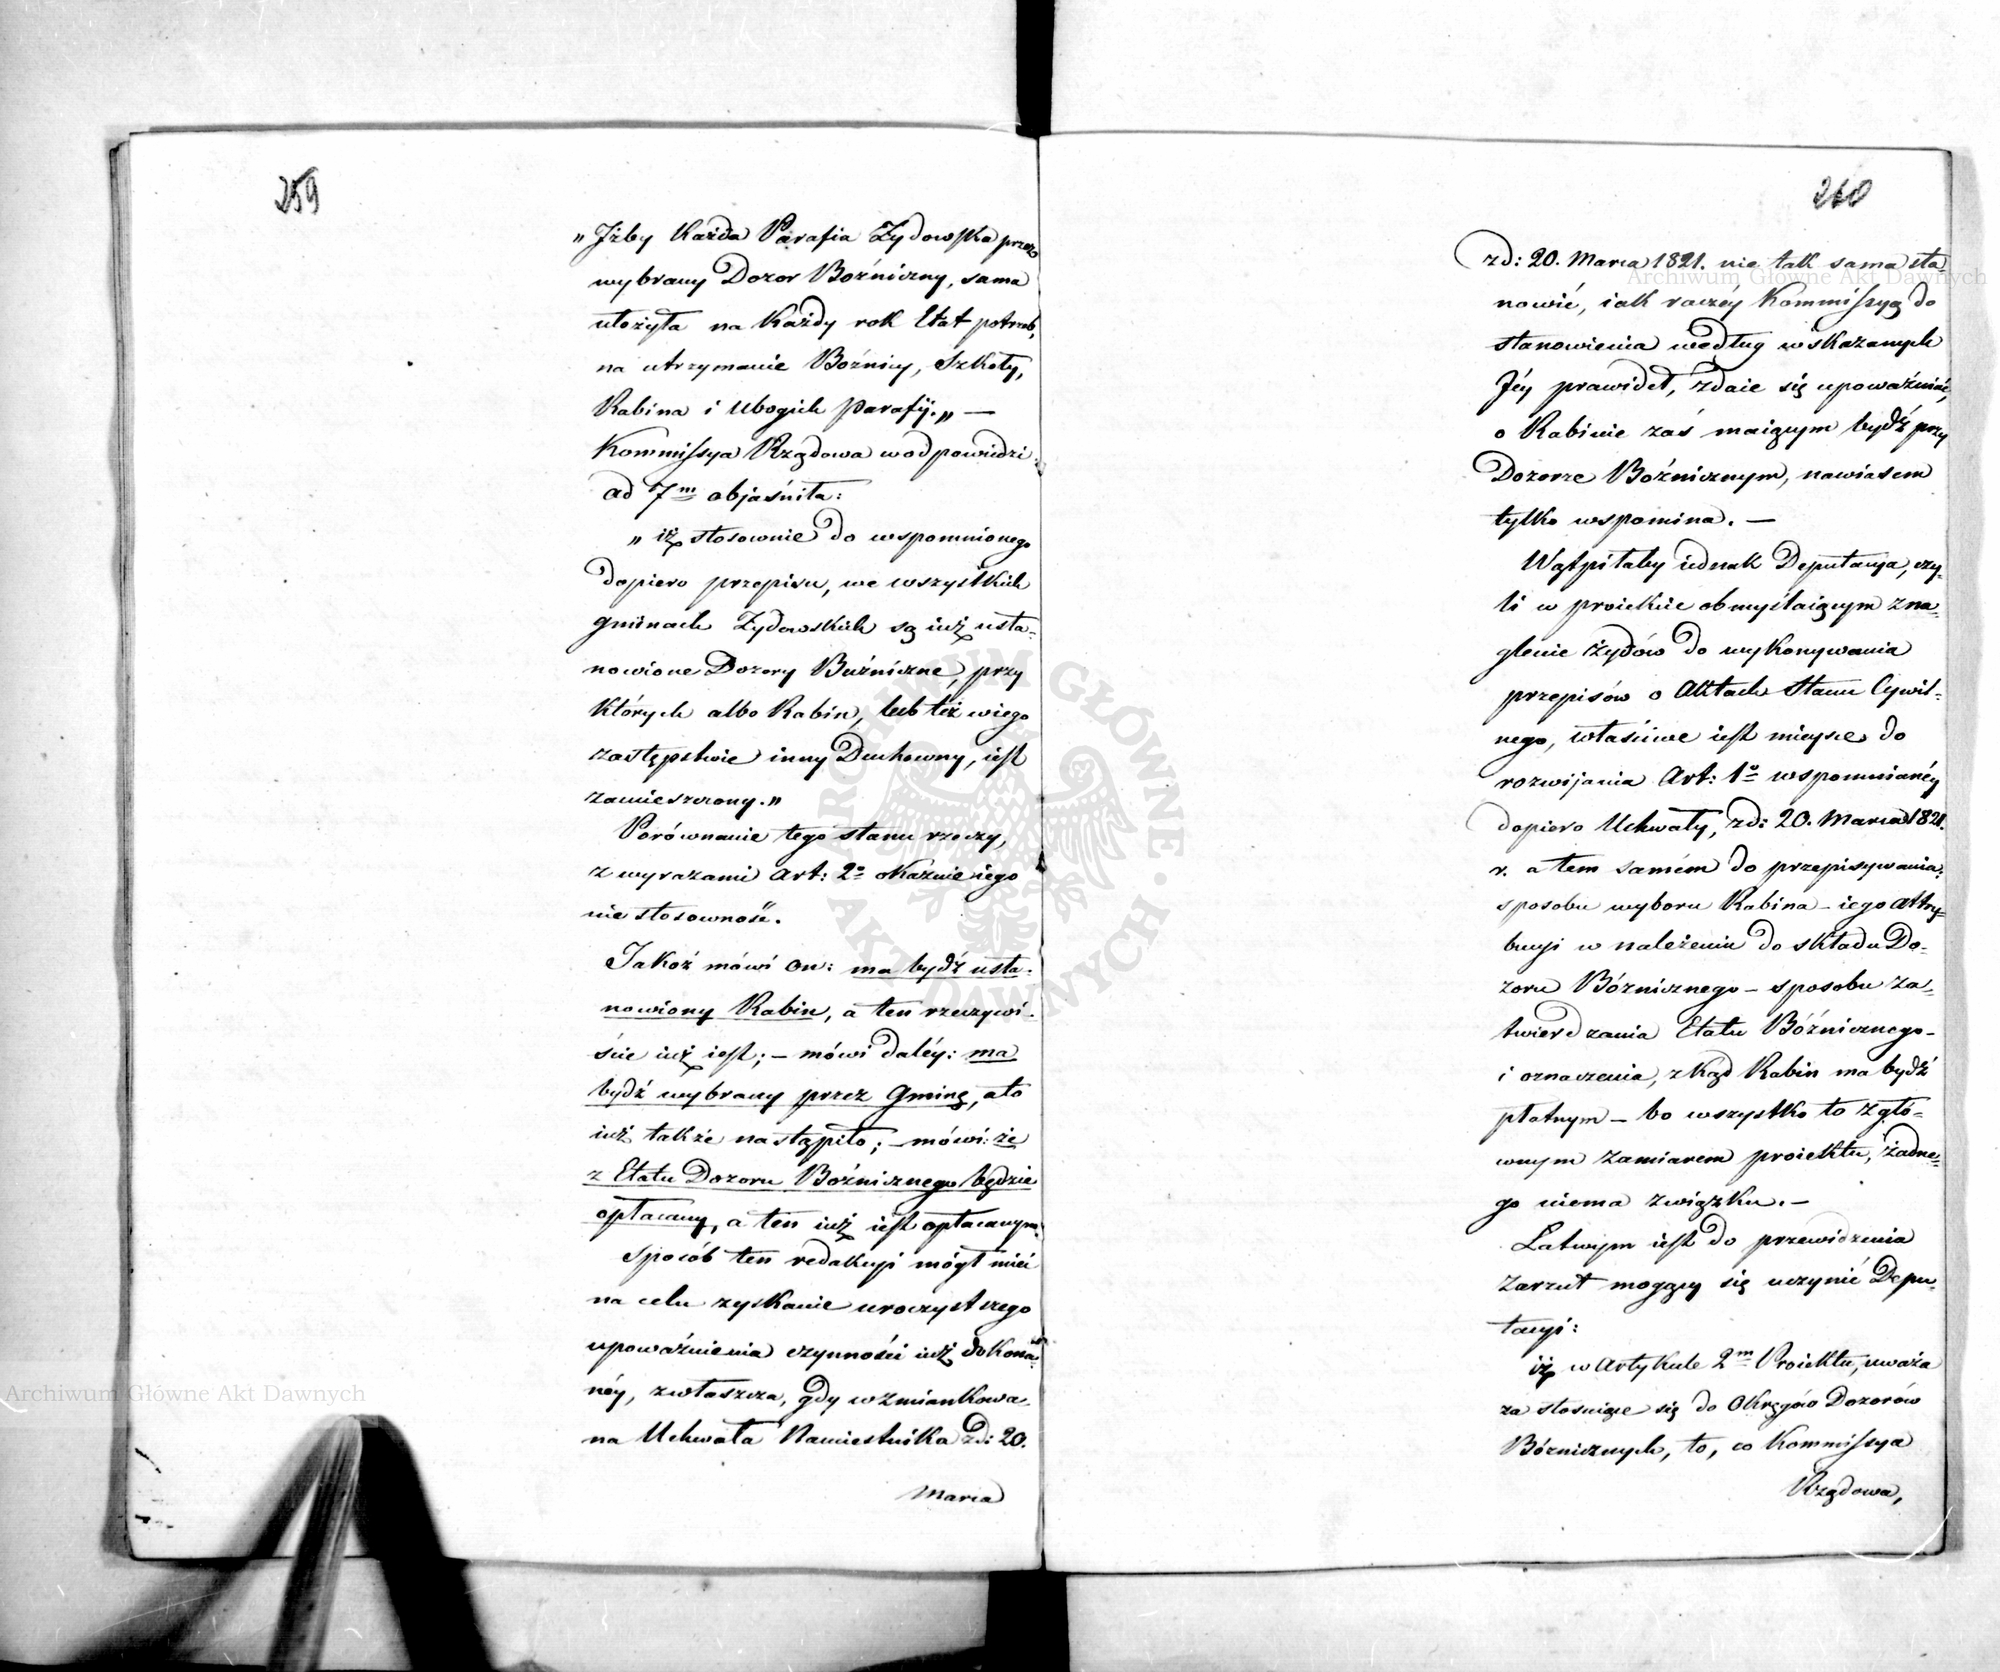 259
„Jżby Każda Parafia Żydowska przez
wybrany Dozor Boźniczny, sama
ułożyła na Każdy rok Etat potrzeb,
na utrzymanie Boźnicy, Szkoły,
Rabina i Ubogich Parafÿ.„ —
Kommissya Rządowa w odpowiedzi
ad 7m objaśniła:
„ iż stosownie do wspomnionego
dopiero przepisu, we wszystkich
gminach Żydowskich są iuż usta-
nowione Dozory Buźniczne, przy
których albo Rabin, lub też w iego
zastępstwie inny Duchowny, iest
zamieszczony.„
Porównanie tego stanu rzeczy,
z wyrazami Art: 2o okaznie iego
nie stosowność.
Jakoż mówi on: ma bydź usta-
nowiony Rabin, a ten rzeczywi-
ście iuż iest; — mówi daléy: ma
bydź wybrany przez Gminę, a to
iuż także nastąpiło; — mówi: że
z Etatu Dozoru Boźnicznego będzie
opłacany, a ten iuż iest opłacanym.
Sposób ten redakcyi mógł mieć
na celu zyskanie uroczystszego
upoważnienia czynności iuż dokona-
néy, zwłaszcza, gdy wzmiankowa-
na Uchwała Namiestnika zd: 20.
Marca
260
zd: 20. Marca 1821. nie tak sama sta-
nowić, iak raczéy Kommissyą do
stanowienia według wskazanych
Jéy prawideł, zdaie się upoważniać,
o Rabinie zaś maiącym bydź przy
Dozorze Boźnicznym, nawiasem
tylko wspomina. —
Wątpiłaby iednak Deputacya, czy-
li w proiekcie obmyślaiącym zna-
glenie żydów do wykonywania
przepisów o Aktach Stanu Cywil-
nego, właściwe iest mieysce do
rozwijania Art: 1o wspomnianéy
dopiero Uchwały, zd: 20. Marca 1821.
r. a tem samém do przepisywania:
sposobu wyboru Rabina — iego attry-
bucyi w należeniu do składu Do-
zoru Bóźnicznego — sposobu za-
twierdzania Etatu Bóźnicznego —
i oznaczenia, zkąd Rabin ma bydź
płatnym — bo wszystko to z głó-
wnym zamiarem proiektu, żadne-
go niema związku. —
Łatwym iest do przewidzenia
zarzut mogący się uczynić Depu-
tacyi:
iż w Artykule 2m Proiektu, uważa
za stosuiące się do Okręgów Dozorów
Bóźnicznych, to, co Kommissya
Rządowa,
Archiwum Główne Akt Dawnych
Archiwum Główne Akt Dawnych
ARCHIWUM GŁÓWNE · AKT DAWNYCH ·